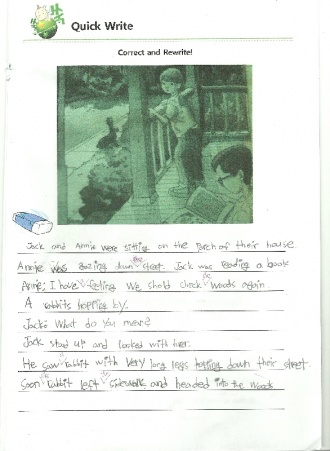 Quick Write
Correct and Rewrite!
Jack and Annie were sitting on the porch of their house
Annie was gazing down the street. Jack was reading a book
Annie; I have a feeling We should check the woods again
A rabbits hopping by.
Jack: What do you mean?
Jack stood up and looked with her.
He saw a rabbit with very long legs hopping down their street
Soon the rabbit left the sidewalk and headed into the woods